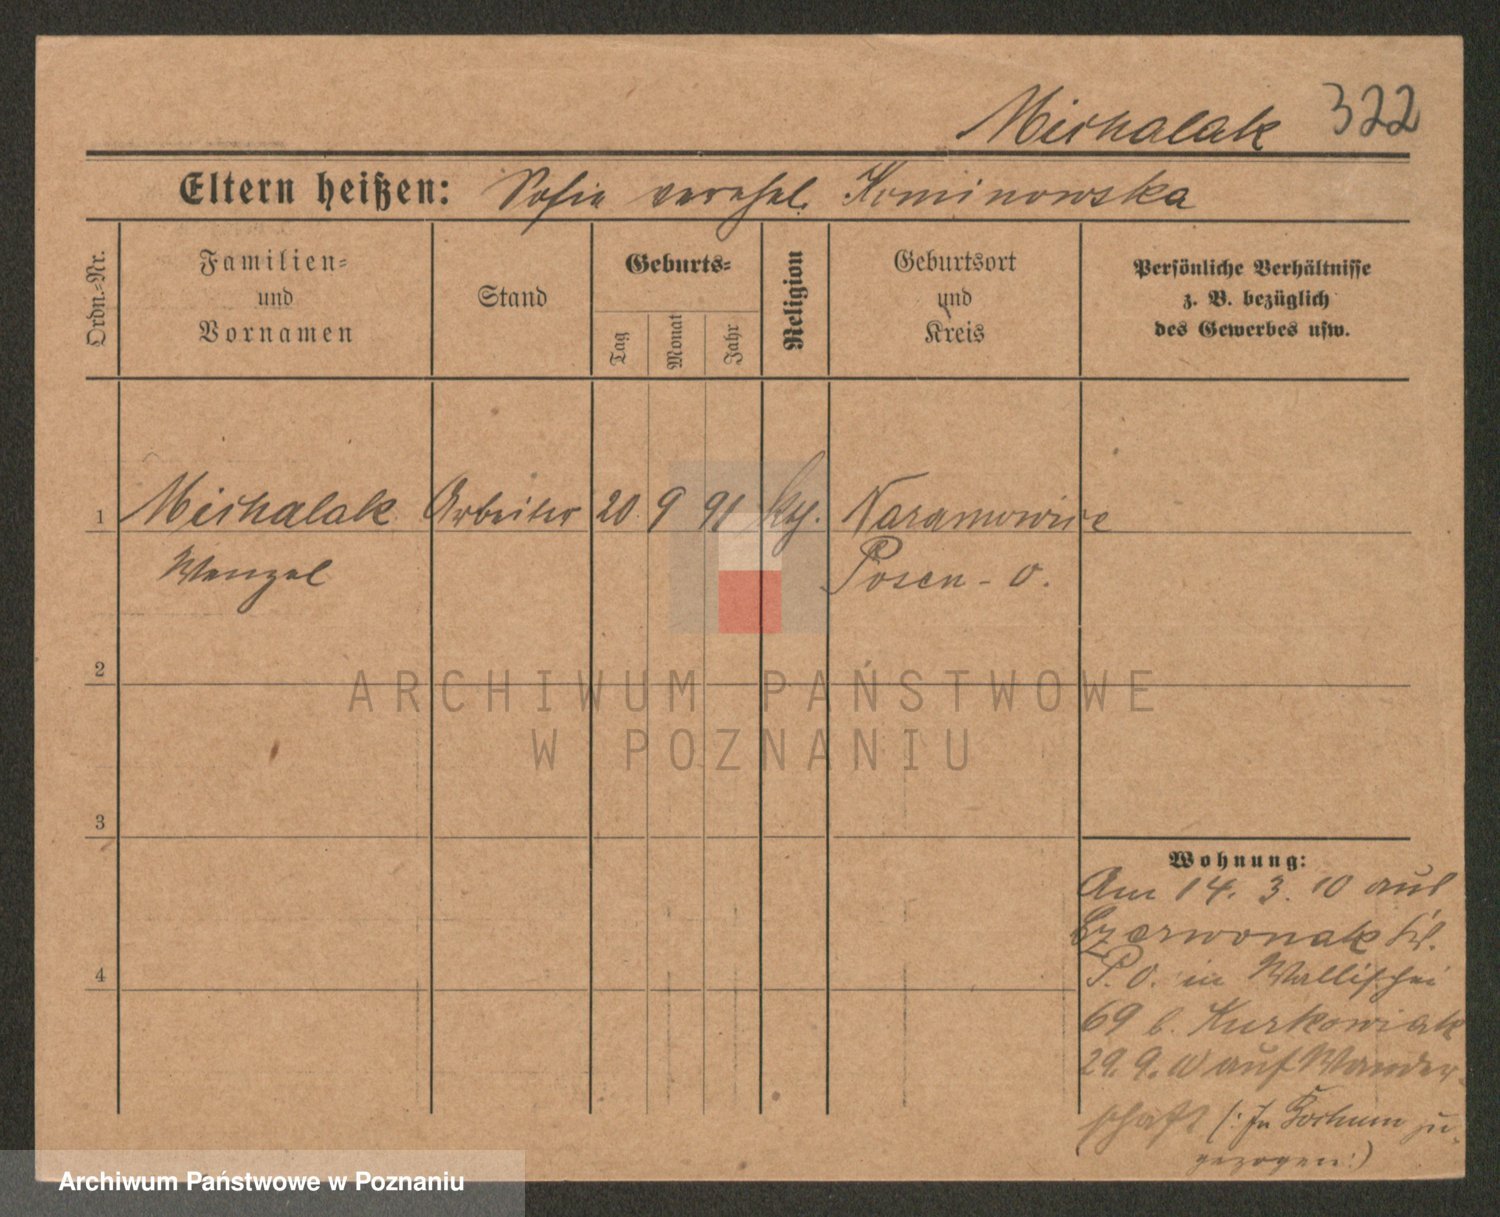 Michalak 322
Eltern heißen: Sofie verehel. Kominowska
Ordn.-Nr.
Familien-
und
Vornamen
Stand
Geburts-
Tag
Monat
Jahr
Religion
Geburtsort
und
Kreis
Persönliche Verhältnisse
z. B. bezüglich
des Gewerbes usw.
1 Michalak Arbeiter 20 9 91 Naramowice
Wenzel Posen - O.
2
ARCHIWUM PAŃSTWOWE
W POZNANIU
3
Wohnung:
Am 14. 3. 10 aus
Czerwonak
P. O. in Wallischei
4
69 b. Kurkowiak
29. 9. 10 auf Wander-
schaft (: In Bochum zu-
gezogen :)
Archiwum Państwowe w Poznaniu